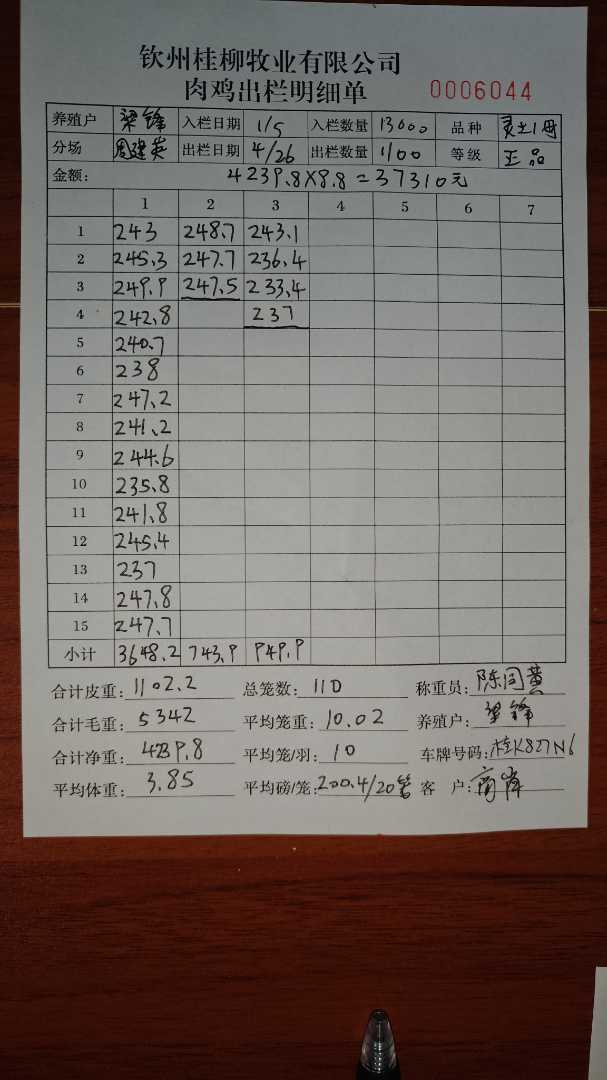 钦州桂柳牧业有限公司
肉鸡出栏明细单 0006044
养殖户 梁锋 入栏日期 1/5 入栏数量 13000 品种 灵土1母
分场 周建英 出栏日期 4/26 出栏数量 1100 等级 正品
金额: 4239.8×8.8=37310元
1 2 3 4 5 6 7
1 243 248.7 243.1
2 245.3 247.7 236.4
3 249.9 247.5 233.4
4 242.8 237
5 240.7
6 238
7 247.2
8 241.2
9 244.6
10 235.8
11 241.8
12 245.4
13 237
14 247.8
15 247.7
小计 3648.2 743.9 949.9
合计皮重: 1102.2 总笼数: 110 称重员: 陈同黄
合计毛重: 5342 平均笼重: 10.02 养殖户: 梁锋
合计净重: 4239.8 平均笼/羽: 10 车牌号码: 桂K827N6
平均体重: 3.85 平均磅/笼: 200.4/20笼 客 户: